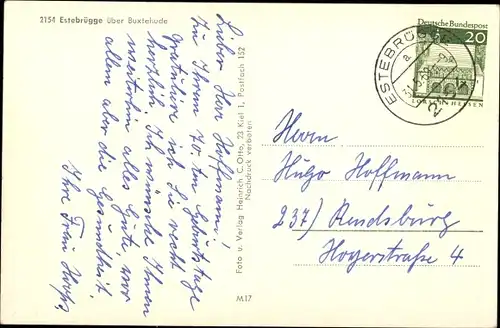 2154 Estebrügge über Buxtehude
Lieber Herr Hoffmann!
Zu Ihrem 70. ten Geburtstage
gratuliere ich Sie recht
herzlich. Ich wünsche Ihnen
weiterhin alles Gute, vor
allem aber die Gesundheit.
Ihre Frau
Foto u. Verlag Heinrich C. Otto, 23 Kiel 1, Postfach 152
Nachdruck verboten
M17
Deutsche Bundespost
20
LORSCH/HESSEN
ESTEBRÜGGE
a
Herrn
Hugo Hoffmann
237) Rendsburg
Hoyerstraße 4